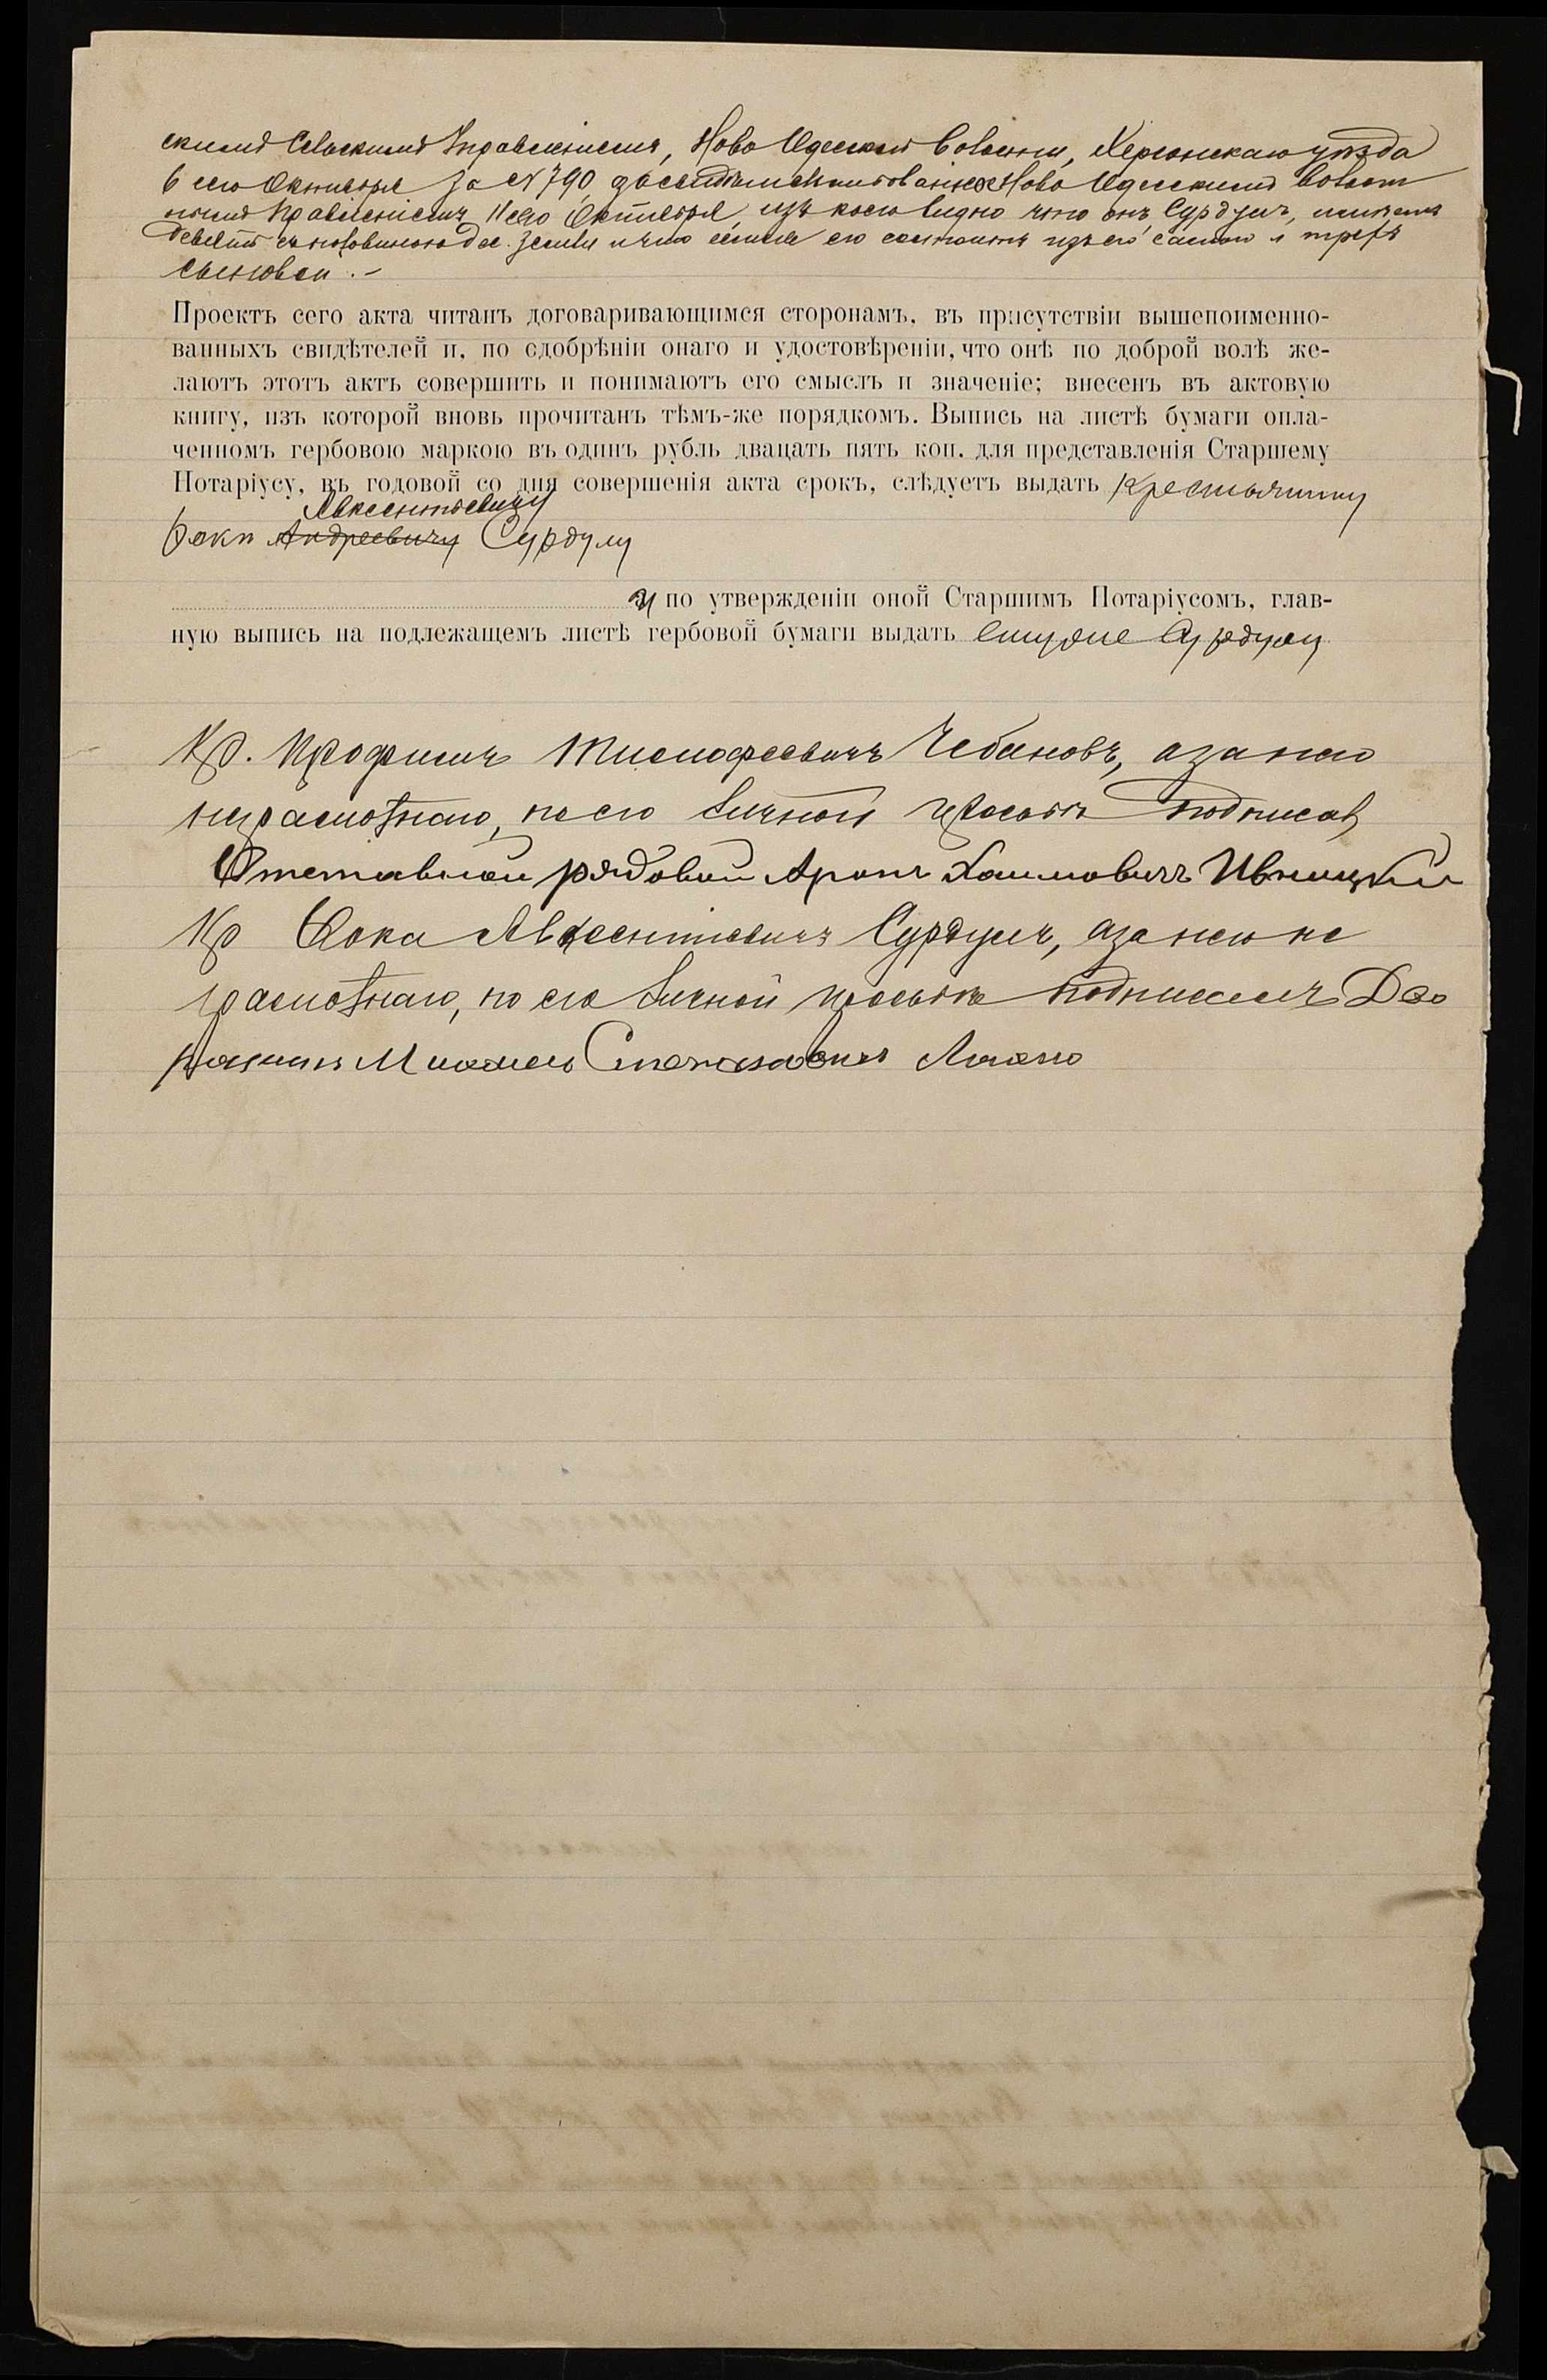 скимъ Сельскимъ Управленіемъ, Ново Одесской волости, Херсонскаго уѣзда
6 сего Октября за № 790, засвидѣтельствованное Ново Одесскимъ волост
нымъ Правленіемъ 11 сего Октября, изъ коего видно что онъ Сурдулъ, имѣетъ
девять съ половиною дес. земли и что семья его состоитъ изъ его самого и трехъ
сыновей. –
Проектъ сего акта читанъ договаривающимся сторонамъ, въ присутствіи вышепоименно-
ванныхъ свидѣтелей и, по одобрѣніи онаго и удостовѣреніи, что онѣ по доброй волѣ же-
лаютъ этотъ актъ совершить и понимаютъ его смыслъ и значеніе; внесенъ въ актовую
книгу, изъ которой вновь прочитанъ тѣмъ-же порядкомъ. Выпись на листѣ бумаги опла-
ченномъ гербовою маркою въ одинъ рубль двацать пять коп. для представленія Старшему
Нотаріусу, въ годовой со дня совершенія акта срокъ, слѣдуетъ выдать крестьянину
Авксентьевичу
Фокѣ Андреевичу Сурдулу
и по утвержденіи оной Старшимъ Нотаріусомъ, глав-
ную выпись на подлежащемъ листѣ гербовой бумаги выдать ему же Сурдулу
Кр. Трофимъ Тимофеевичъ Чебановъ, а за него
неграмотнаго, по его личной просьбѣ подписалъ
Отставной рядовой Аронъ Хаимовичъ Ивницкій
Кр Фока Авксентіевичъ Сурдулъ, а за него не
грамотнаго, по его личной просьбѣ подписалъ Дво
рянинъ Михаилъ Степановичъ